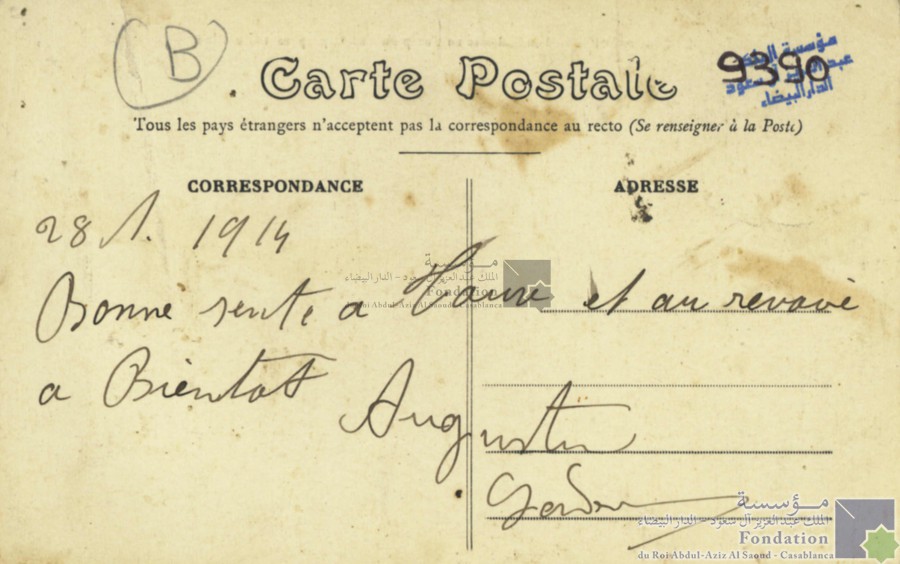 (B)
Carte Postale
9390
مؤسسة الملك
عبد العزيز آل سعود
الدار البيضاء
Tous les pays étrangers n'acceptent pas la correspondance au recto (Se renseigner à la Poste)
CORRESPONDANCE
ADRESSE
28 1. 1914
Bonne sente a et au revoir
a Bientot
Augustin
مؤسسة
الملك عبد العزيز آل سعود - الدار البيضاء
Fondation
du Roi Abdul-Aziz Al Saoud - Casablanca
مؤسسة
الملك عبد العزيز آل سعود - الدار البيضاء
Fondation
du Roi Abdul-Aziz Al Saoud - Casablanca